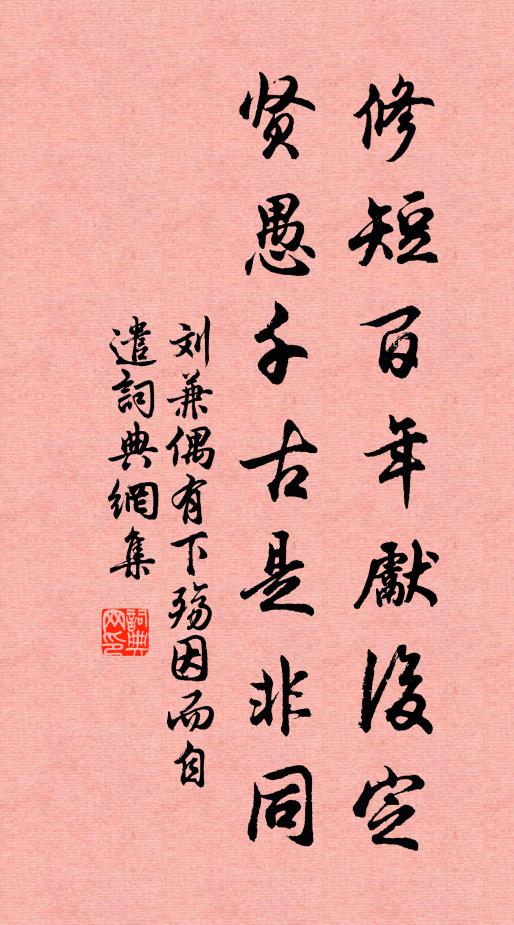 修短百年獻後定
贤愚千古是非同
刘兼偶有下殇因而自
遣詞典網集
詞典网印